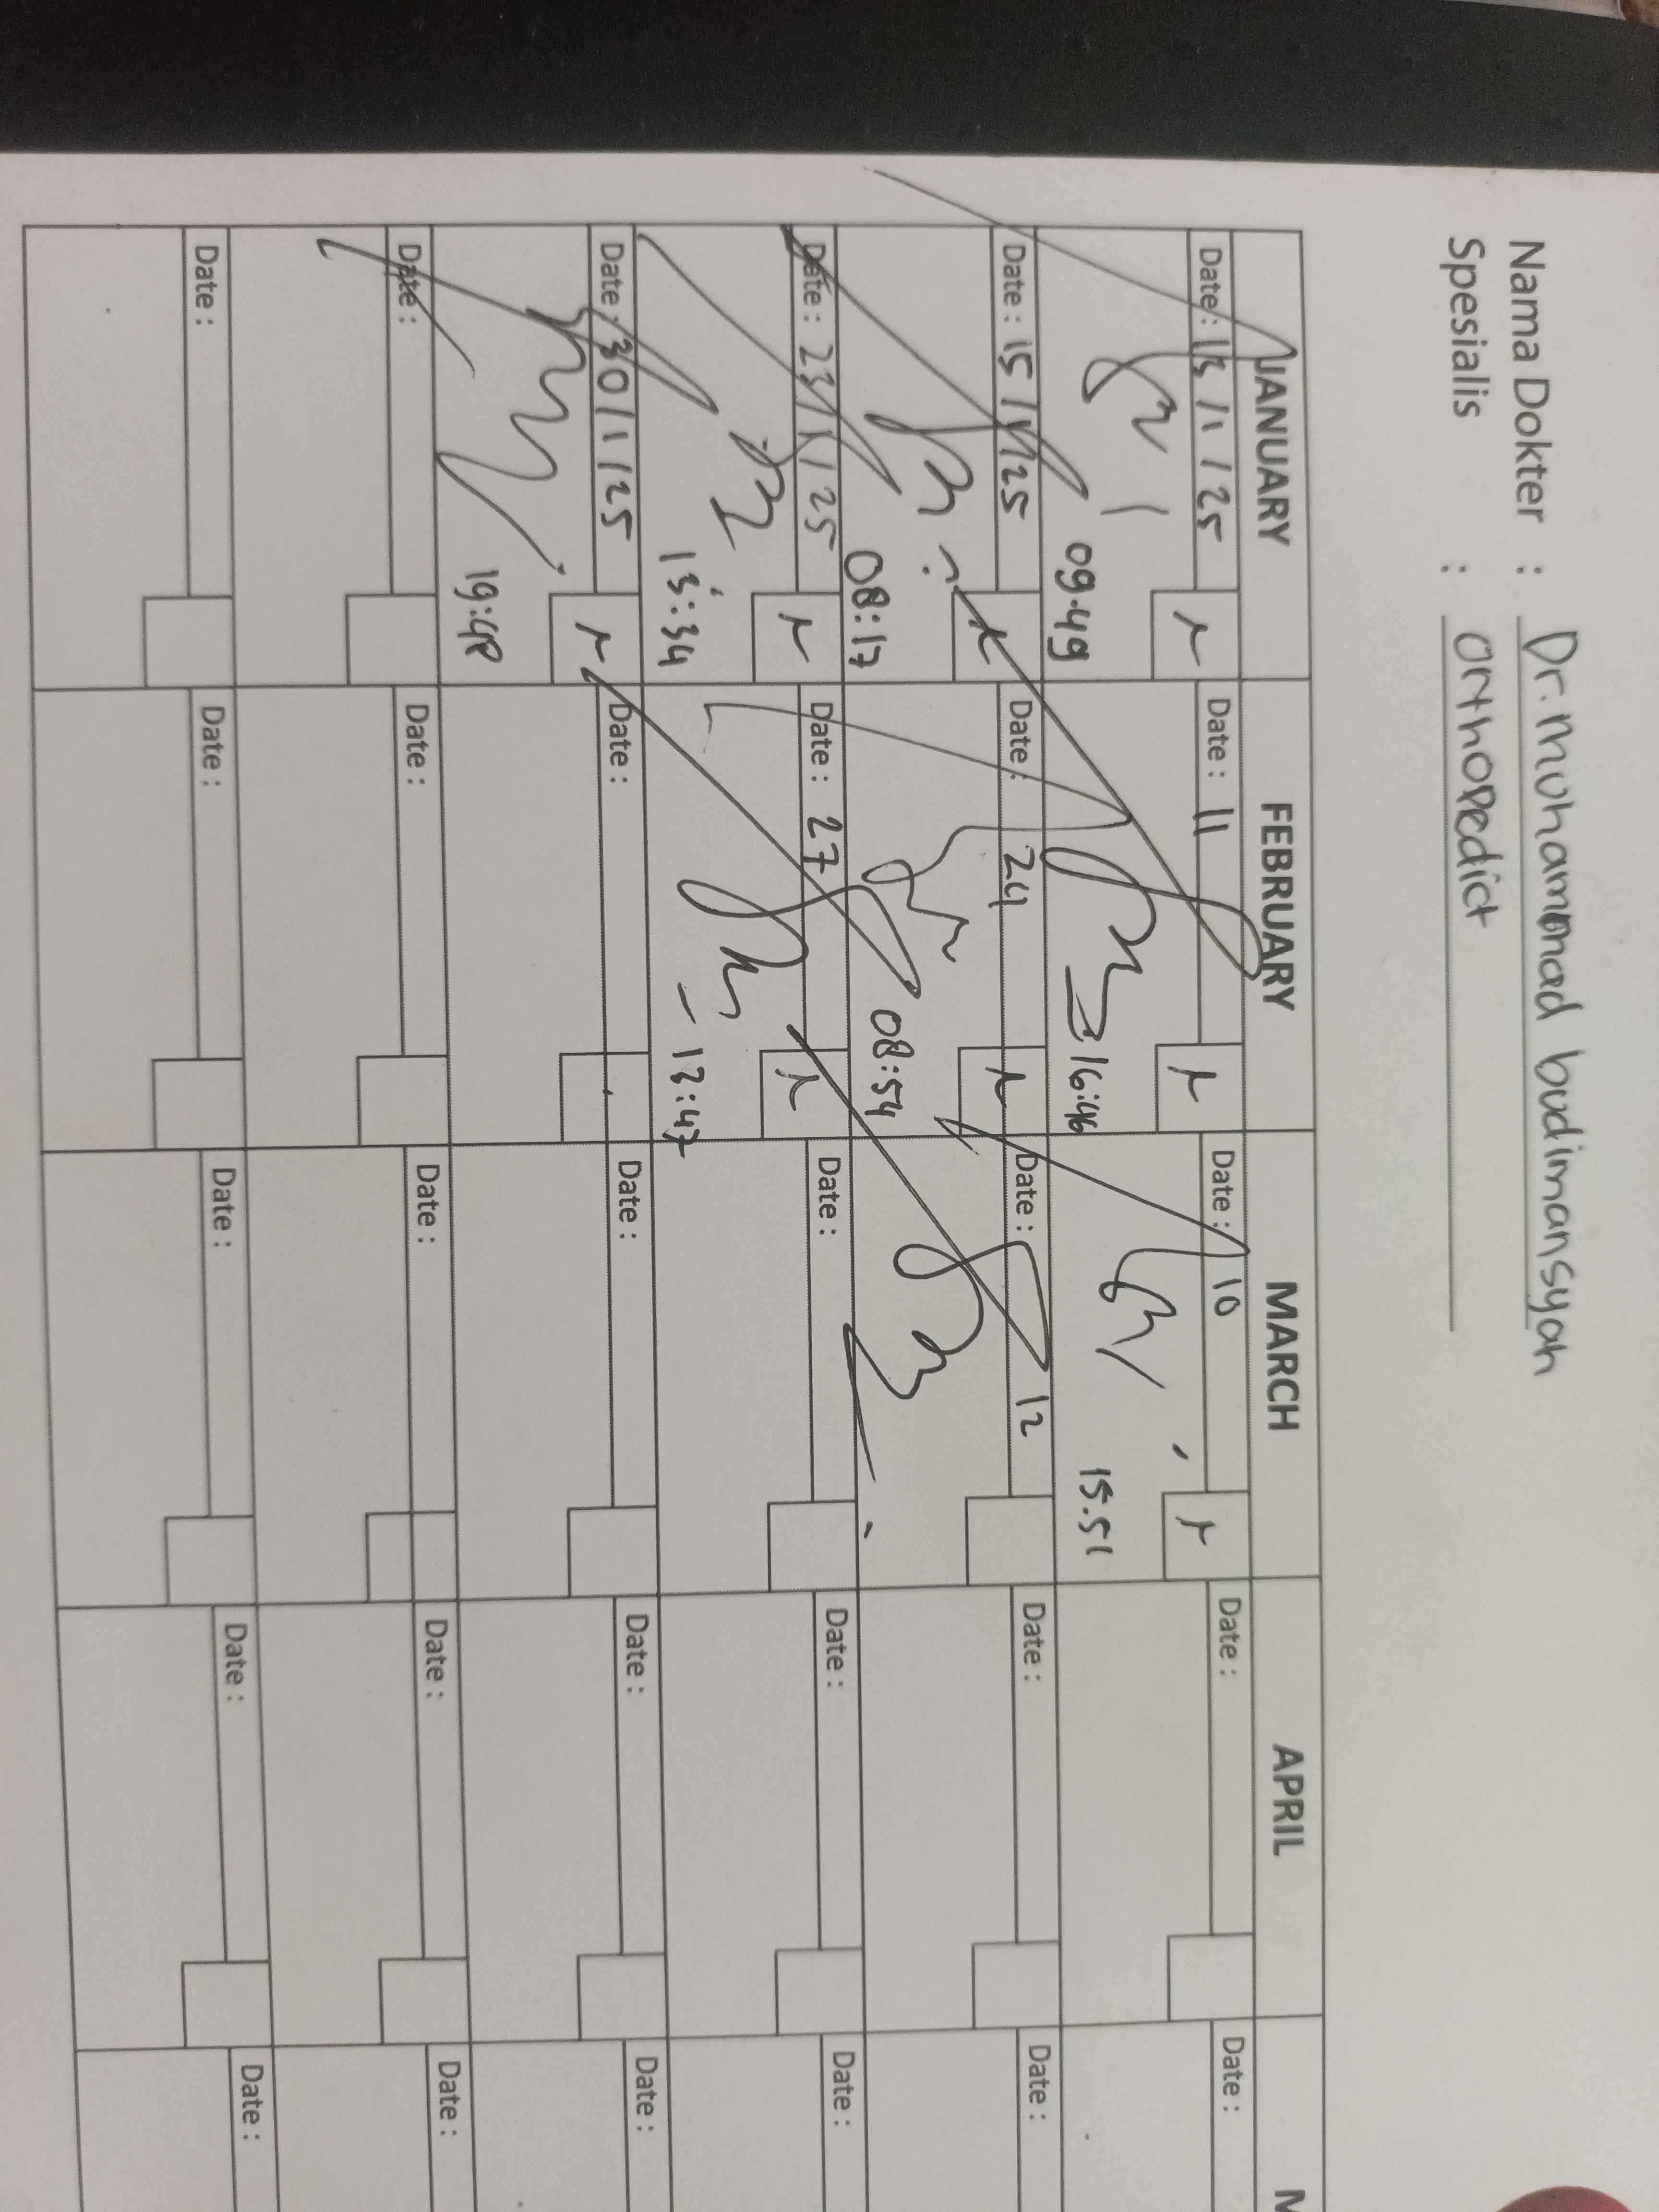 Nama Dokter : Dr. Muhammad budimansyah
Spesialis : orthopedict
JANUARY FEBRUARY MARCH APRIL M
Date : 13 / 1 / 25 Date : 11 Date : 10 Date : Date :
09.49 16:46 15.51
Date : 15 / 1 / 25 Date : 24 Date : 12 Date : Date :
08:17 08:54
Date : 23 / 1 / 25 Date : 27 Date : Date : Date :
13:34 13:47
Date : 30 / 1 / 25 Date : Date : Date : Date :
19:48
Date : Date : Date : Date : Date :
Date : Date : Date : Date : Date :